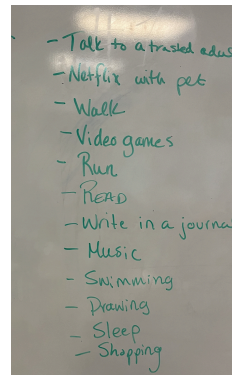 - Talk to a trusted
- Netflix with pet
- Walk
- Video games
- Run
- READ
- Write in a journa
- Music
- Swimming
- Drawing
- Sleep
- Shopping